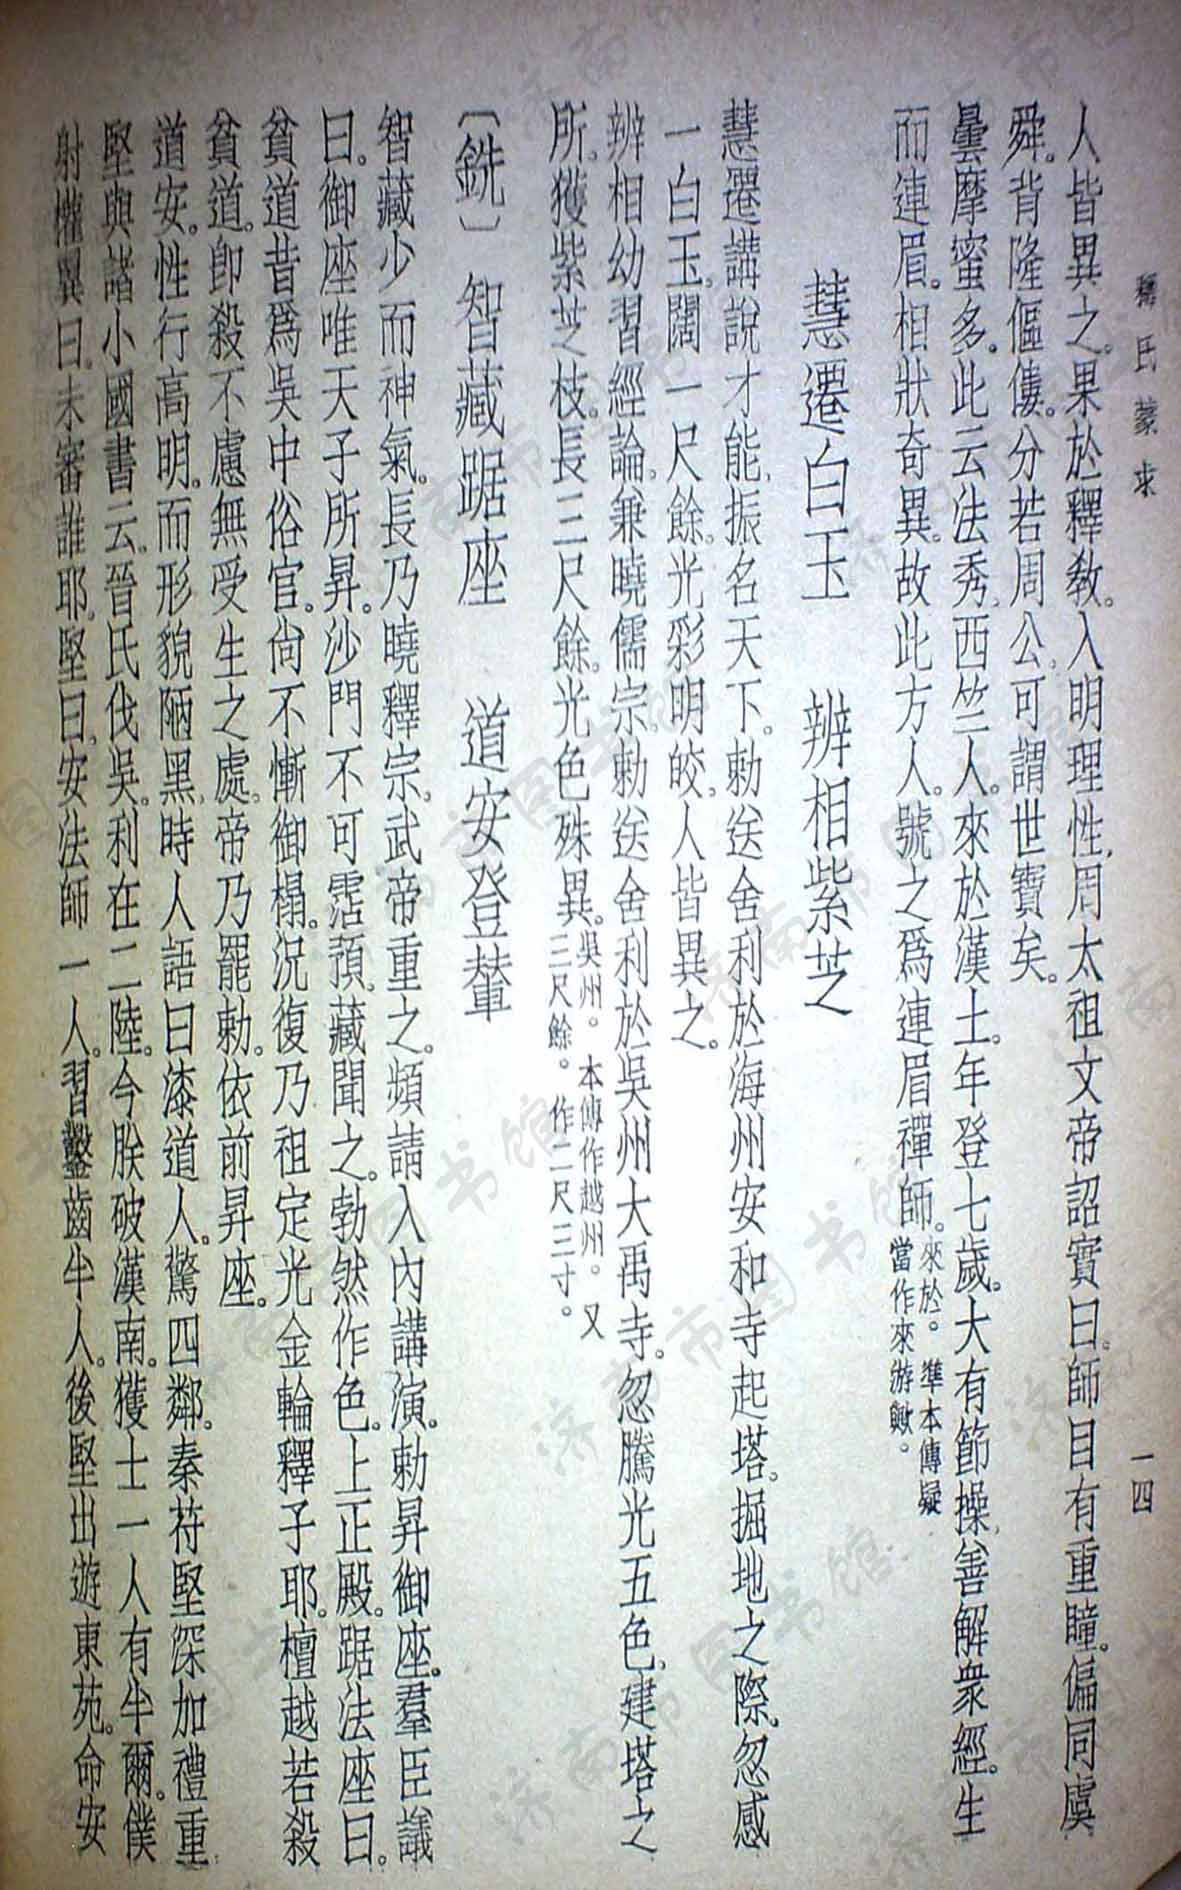 釋氏蒙求
一四
人皆異之。果於釋教。入明理性。周太祖文帝詔實曰。師目有重瞳。偏同虞
舜。背隆傴僂。分若周公。可謂世寶矣。
曇摩蜜多。此云法秀。西竺人。來於漢土。年登七歲。大有節操。善解衆經。生
而連眉。相狀奇異。故此方人。號之爲連眉禪師。來於。準本傳疑當作來游歟。
慧遷白玉　辨相紫芝
慧遷講說才能。振名天下。勅送舍利於海州安和寺起塔。掘地之際。忽感
一白玉。闊一尺餘。光彩明皎。人皆異之。
辨相幼習經論。兼曉儒宗。勅送舍利於吳州大禹寺。忽騰光五色。建塔之
所。獲紫芝枝。長三尺餘。光色殊異。吳州。本傳作越州。又三尺餘。作二尺三寸。
〔銑〕智藏踞座　道安登輦
智藏少而神氣。長乃曉釋宗。武帝重之。頻請入內講演。勅昇御座。羣臣議
曰。御座唯天子所昇。沙門不可霑預。藏聞之。勃然作色。上正殿。踞法座曰。
貧道昔爲吳中俗官。尙不慚御榻。況復乃祖定光金輪釋子耶。檀越若殺
貧道。卽殺不慮無受生之處。帝乃罷勅。依前昇座。
道安。性行高明。而形貌陋黑。時人語曰漆道人。驚四鄰。秦苻堅深加禮重
堅與諸小國書云。晉氏伐吳。利在二陸。今朕破漢南。獲士一人有半爾。僕
射權翼曰。未審誰耶。堅曰。安法師一人。習鑿齒半人。後堅出遊東苑。命安